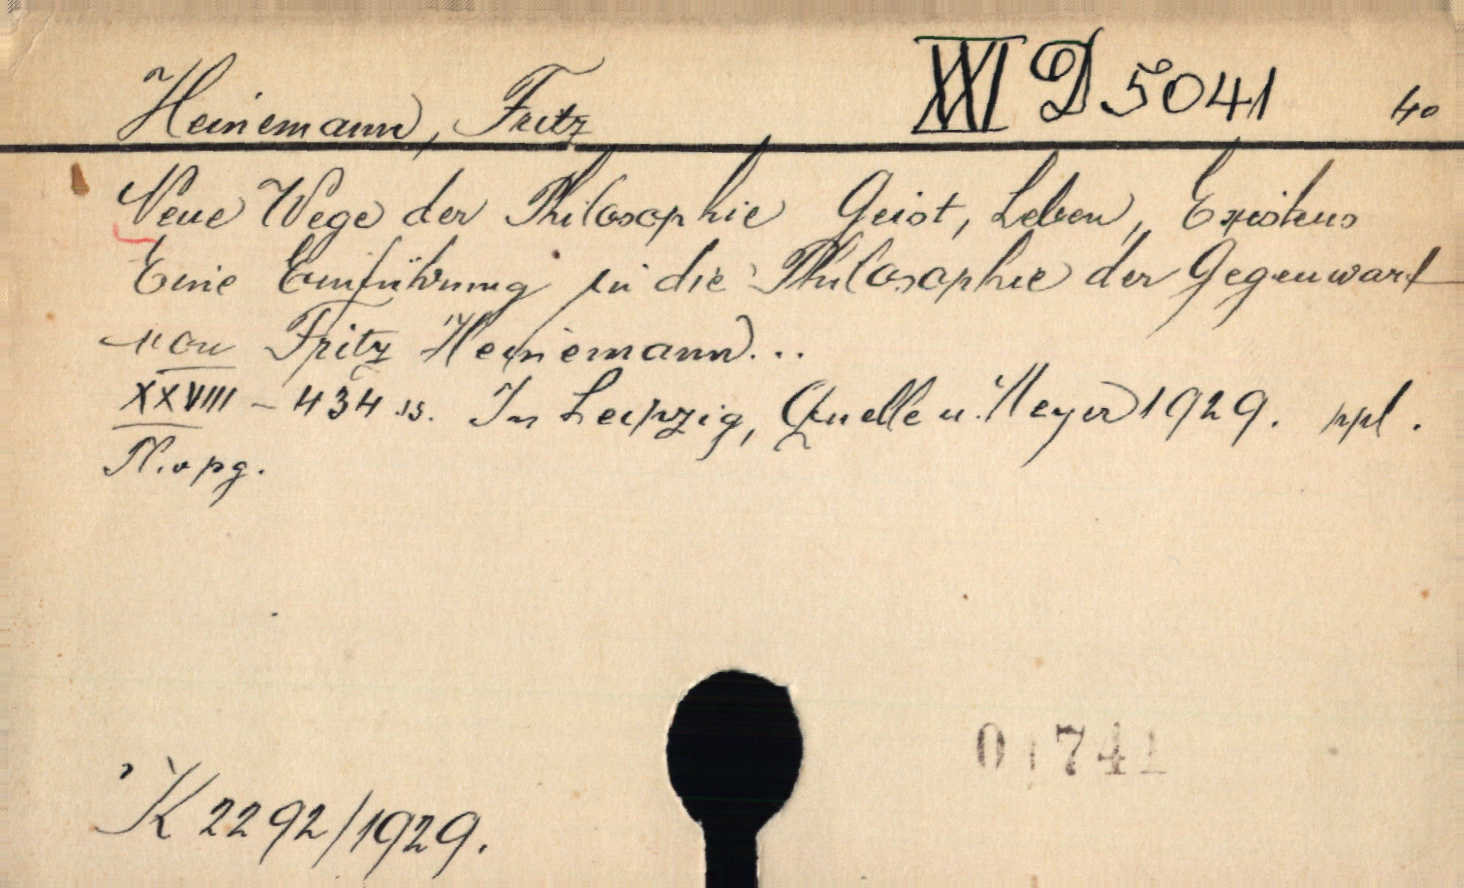 Heinemann, Fritz XXI D 5041 40
Neue Wege der Philosophie Geist, Leben, Existens
Eine Einführung in die Philosophie der Gegenwart
von Fritz Heinemann...
XXVIII – 434 s. In Leipzig, Quelle u. Meyer 1929. ppl.
N. opg.
01741
K 2292/1929.